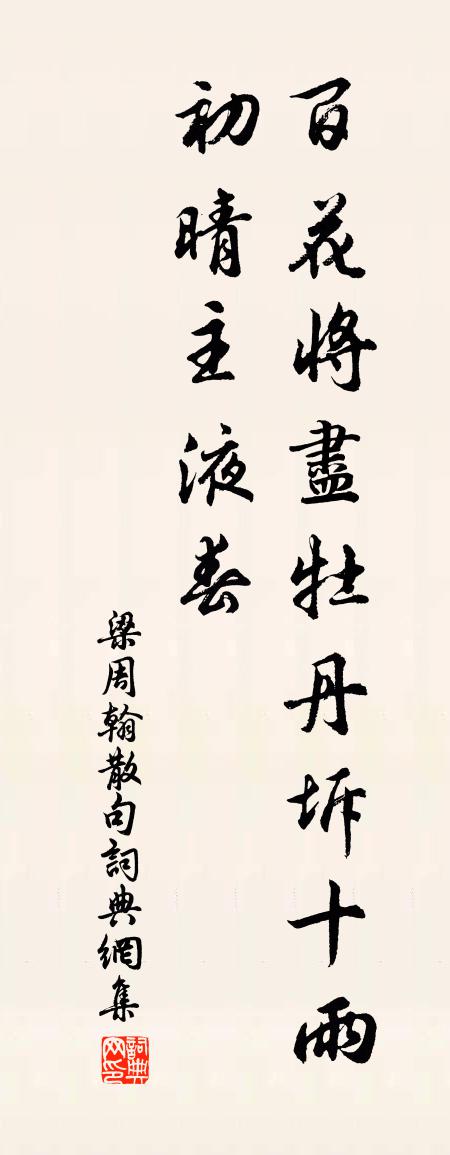 百花將盡牡丹坼十雨
初晴主液春
梁周翰散句詞典網集
詞典网印